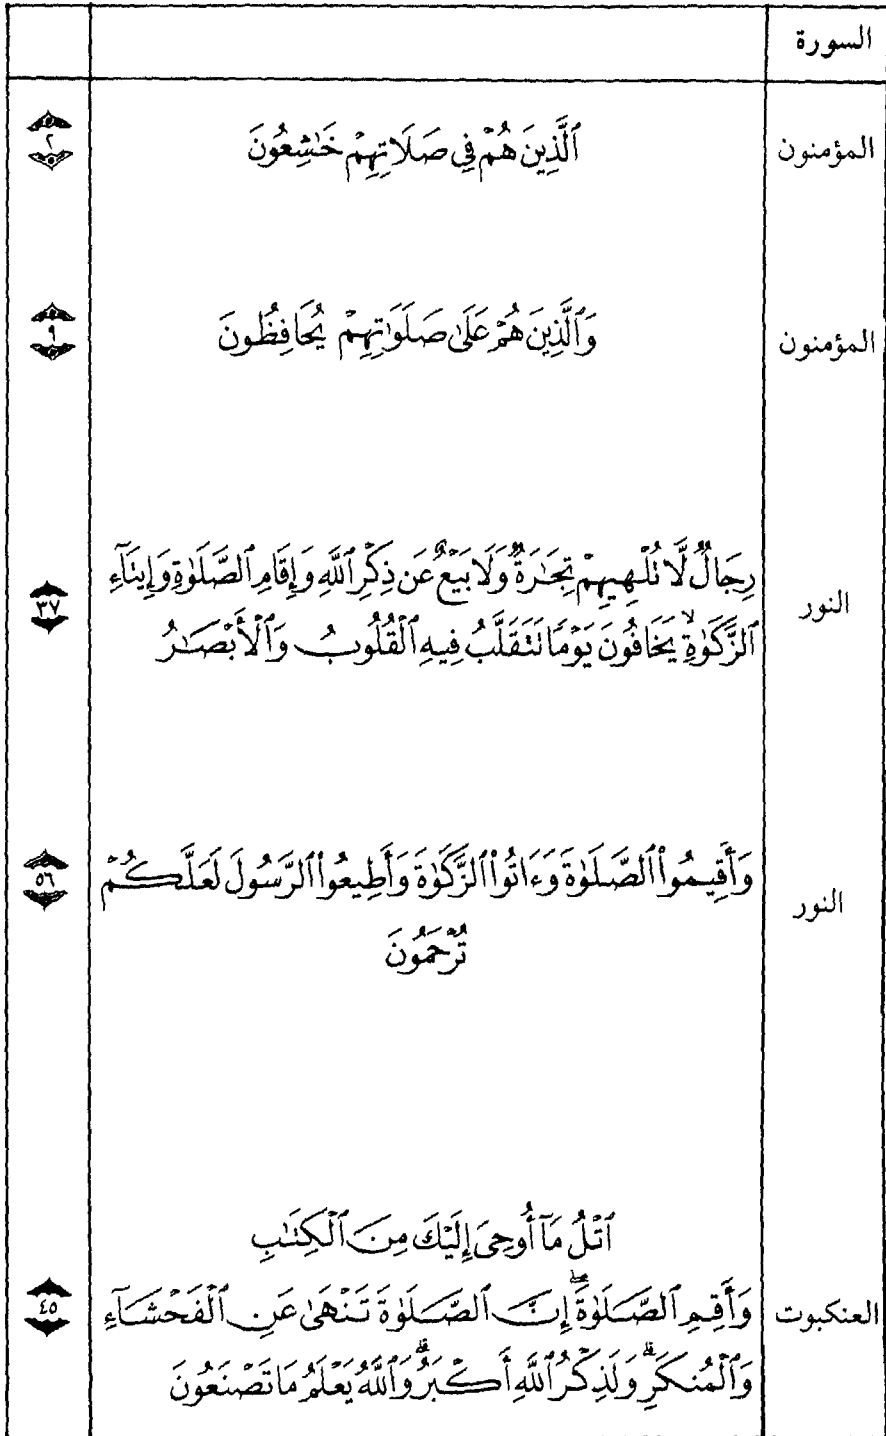 السورة
المؤمنون ٱلَّذِينَ هُمْ فِى صَلَاتِهِمْ خَٰشِعُونَ ٢
المؤمنون وَٱلَّذِينَ هُمْ عَلَىٰ صَلَوَٰتِهِمْ يُحَافِظُونَ ٩
رِجَالٌ لَّا تُلْهِيهِمْ تِجَٰرَةٌ وَلَا بَيْعٌ عَن ذِكْرِ ٱللَّهِ وَإِقَامِ ٱلصَّلَوٰةِ وَإِيتَآءِ
النور ٣٧
ٱلزَّكَوٰةِ ۙ يَخَافُونَ يَوْمًا تَتَقَلَّبُ فِيهِ ٱلْقُلُوبُ وَٱلْأَبْصَٰرُ
وَأَقِيمُوا۟ ٱلصَّلَوٰةَ وَءَاتُوا۟ ٱلزَّكَوٰةَ وَأَطِيعُوا۟ ٱلرَّسُولَ لَعَلَّكُمْ ٥٦
النور
تُرْحَمُونَ
ٱتْلُ مَآ أُوحِىَ إِلَيْكَ مِنَ ٱلْكِتَٰبِ
العنكبوت وَأَقِمِ ٱلصَّلَوٰةَ ۖ إِنَّ ٱلصَّلَوٰةَ تَنْهَىٰ عَنِ ٱلْفَحْشَآءِ ٤٥
وَٱلْمُنكَرِ ۗ وَلَذِكْرُ ٱللَّهِ أَكْبَرُ ۗ وَٱللَّهُ يَعْلَمُ مَا تَصْنَعُونَ